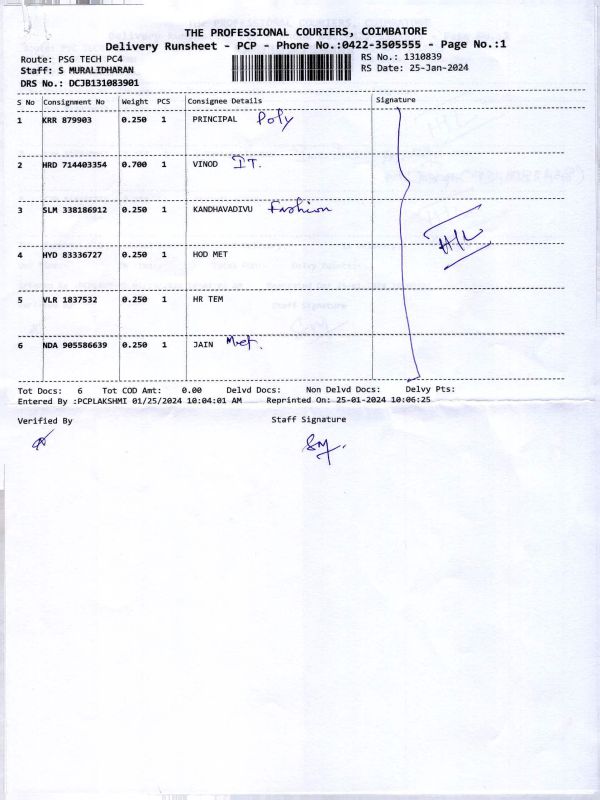 THE PROFESSIONAL COURIERS, COIMBATORE
Delivery Runsheet - PCP - Phone No.:0422-3505555 - Page No.:1
Route: PSG TECH PC4
RS No.: 1310839
Staff: S MURALIDHARAN
RS Date: 25-Jan-2024
DRS No.: DCJB131083901
S No Consignment No Weight PCS Consignee Details Signature
1 KRR 879903 0.250 1 PRINCIPAL Poly
2 HRD 714403354 0.700 1 VINOD IT.
3 SLM 338186912 0.250 1 KANDHAVADIVU Fashion
4 HYD 83336727 0.250 1 HOD MET
5 VLR 1837532 0.250 1 HR TEM
6 NDA 905586639 0.250 1 JAIN Met.
Tot Docs: 6 Tot COD Amt: 0.00 Delvd Docs: Non Delvd Docs: Delvy Pts:
Entered By :PCPLAKSHMI 01/25/2024 10:04:01 AM Reprinted On: 25-01-2024 10:06:25
Verified By Staff Signature